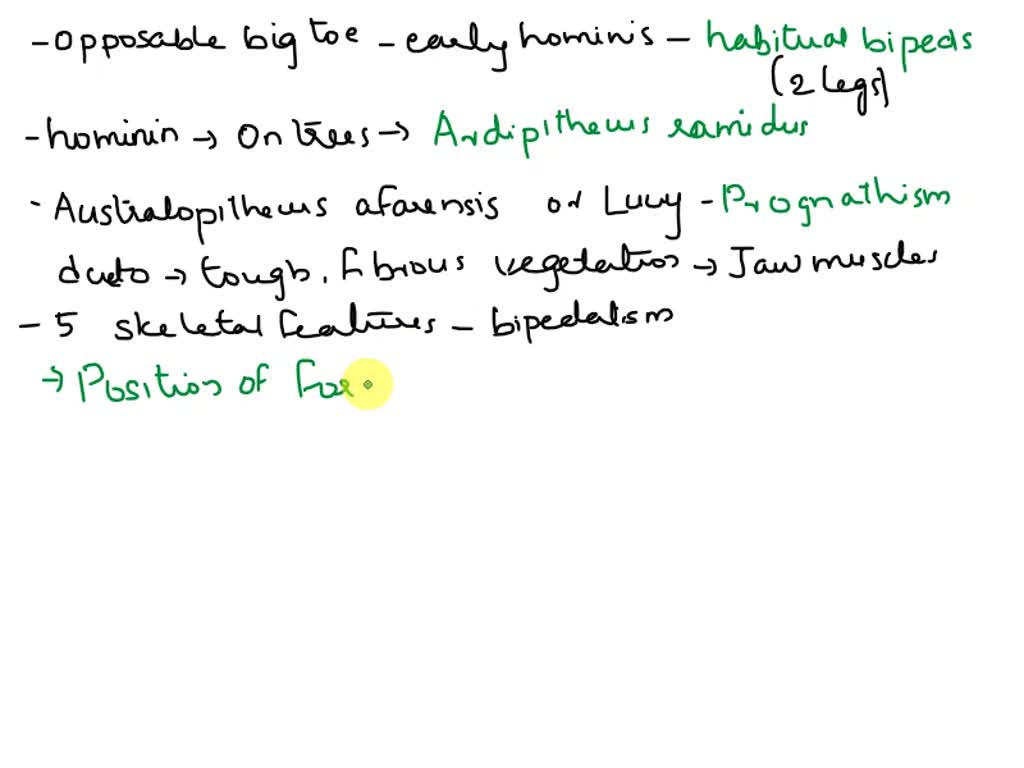 - opposable big toe - early hominis - habitual bipeds
(2 legs)
- hominin → On trees → Ardipithews ramidus
- Australopithews afarensis or Lucy - Prognathism
due to → tough, fibrous vegetation → Jaw muscles
- 5 skeletal features - bipedalism
→ Position of For